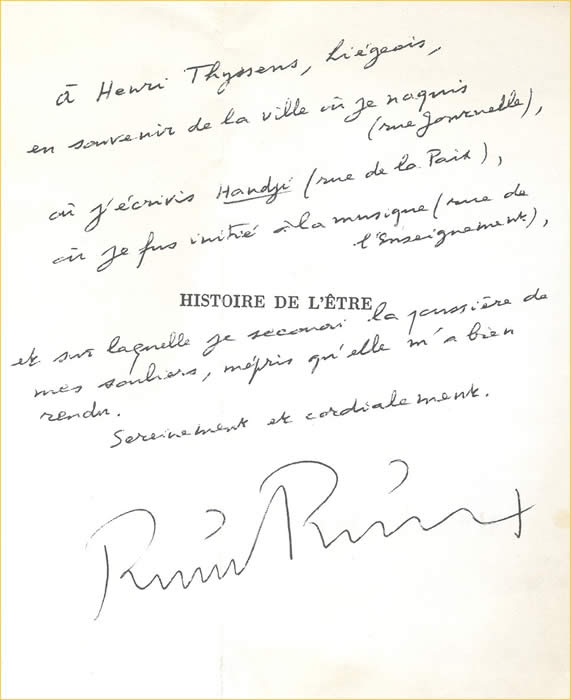 à Henri Thyssens, Liégeois,
en souvenir de la ville où je naquis
(rue Journelle),
où j'écrivis Handji (rue de la Paix),
où je fus initié à la musique (rue de
l'Enseignement),
HISTOIRE DE L'ÊTRE
et sur laquelle je secouai la poussière de
mes souliers, mépris qu'elle m'a bien
rendu.
Sereinement et cordialement.